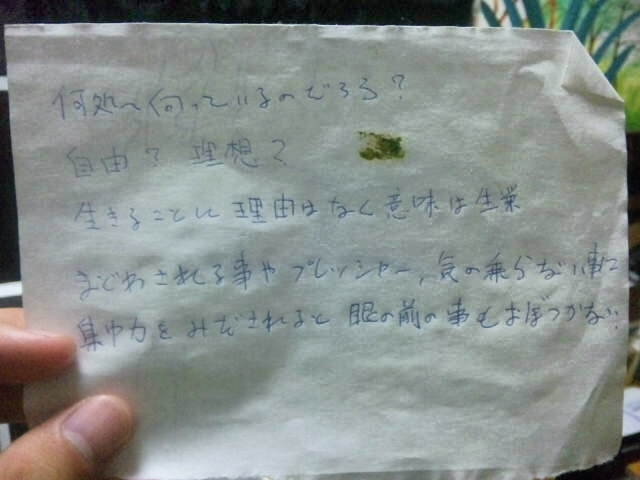 何処へ向っているのだろう?
自由? 理想?
生きることに理由はなく意味は生業
まどわされる事や プレッシャー, 気の乗らない事に
集中力をみだされると 眼の前の事もおぼつかない.